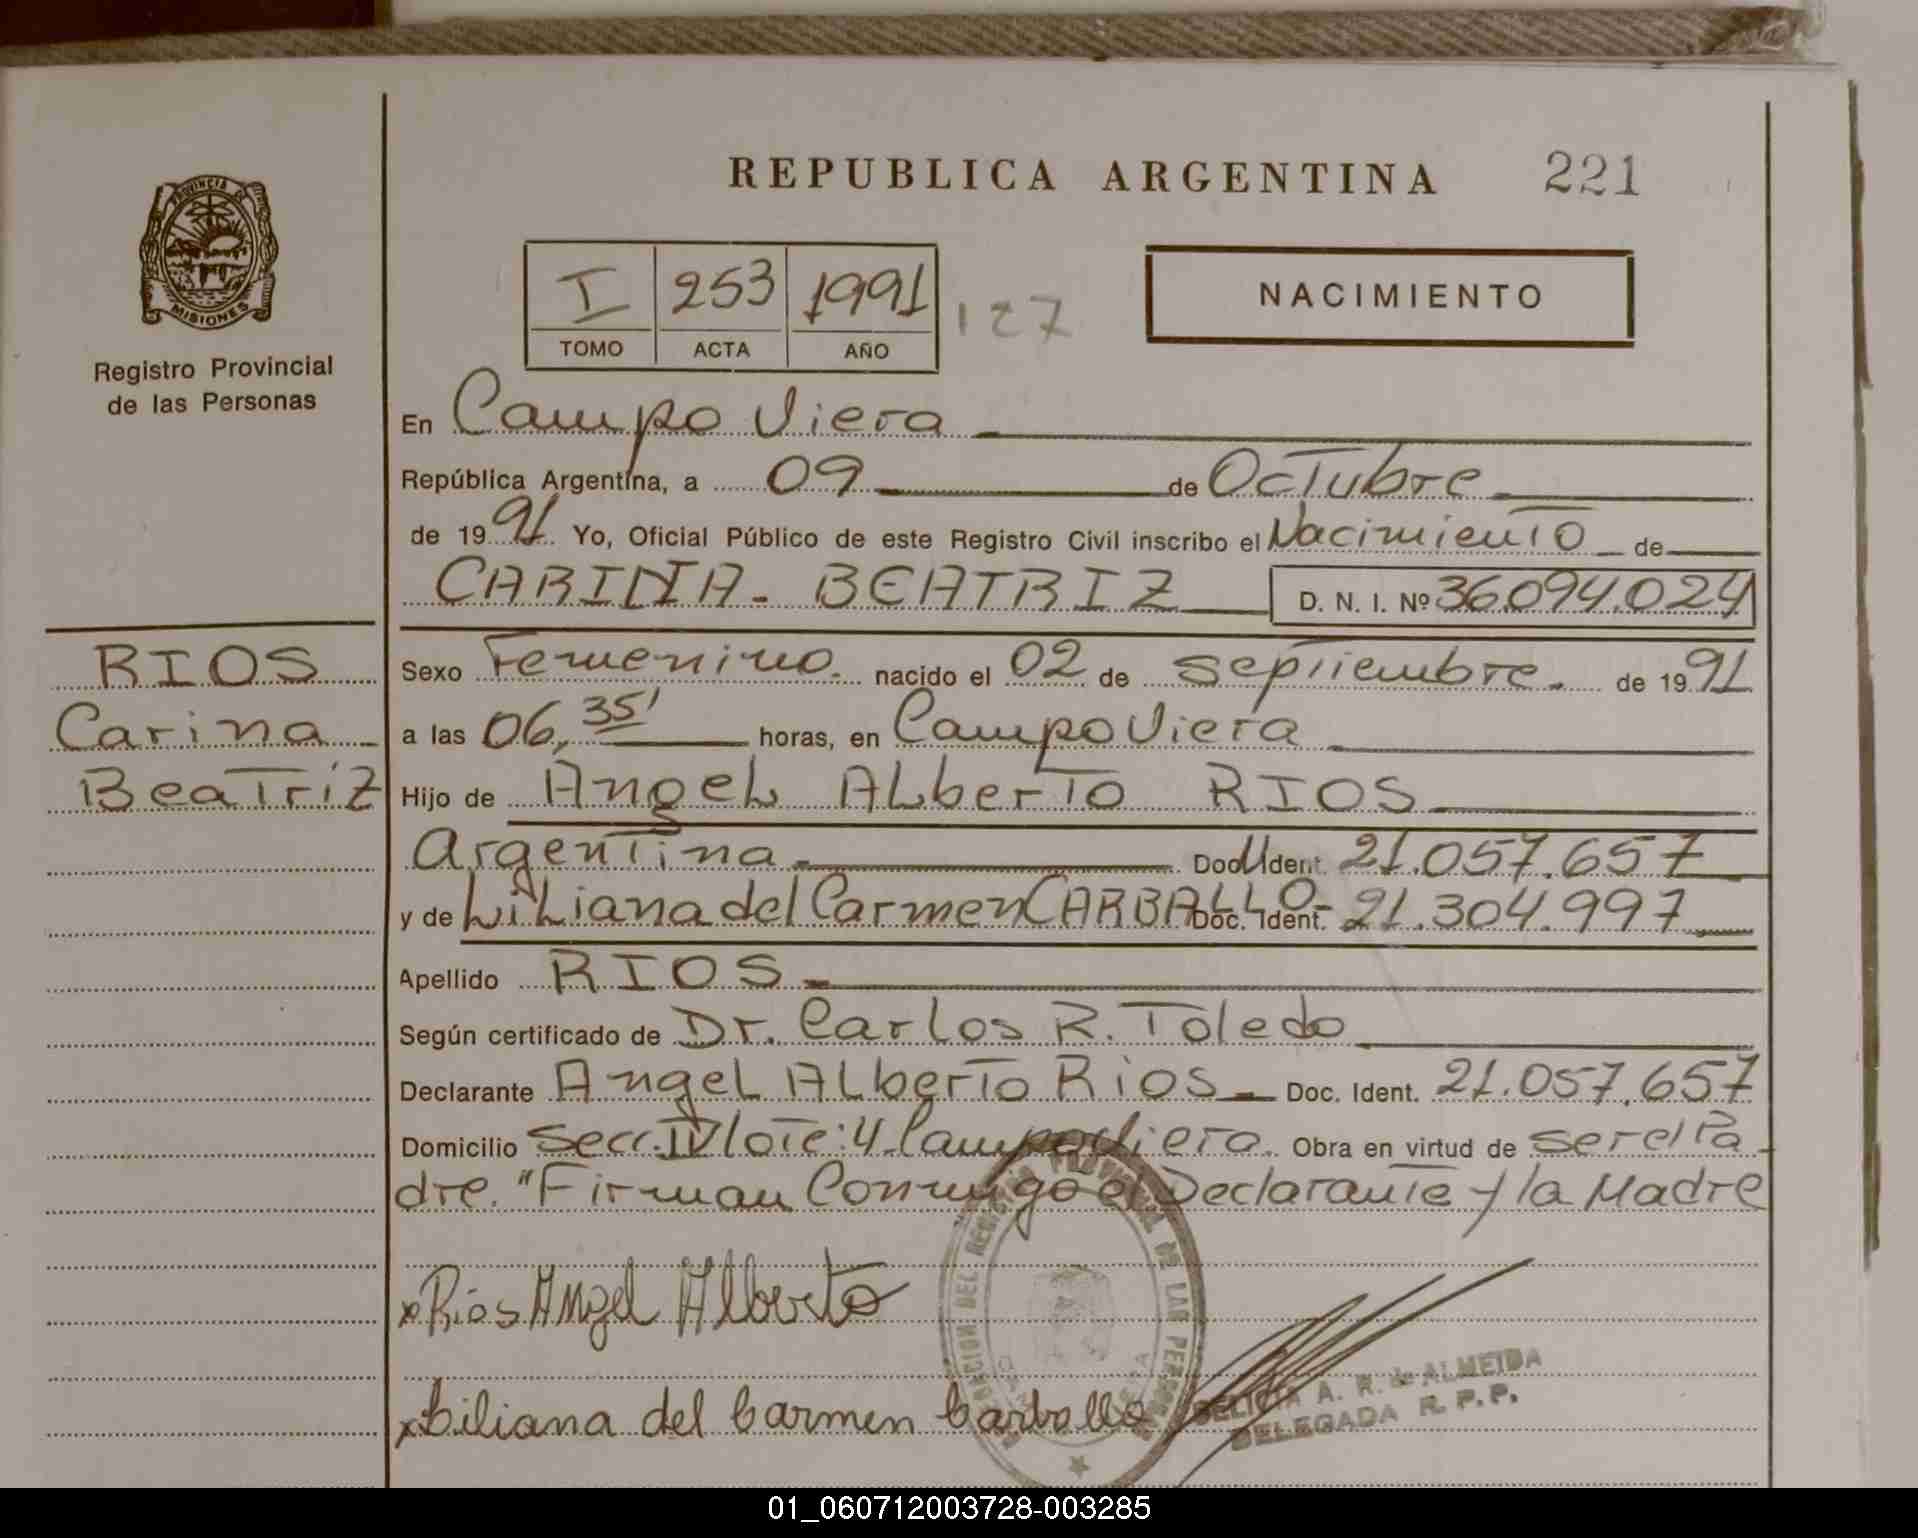 REPUBLICA ARGENTINA 221
PROVINCIA DE
MISIONES
Registro Provincial
de las Personas
I 253 1991 127
TOMO ACTA AÑO
NACIMIENTO
En Campo Viera
República Argentina, a 09 de Octubre
de 1991 Yo, Oficial Público de este Registro Civil inscribo el Nacimiento de
CARINA - BEATRIZ D. N. I. Nº 36.094.024
RIOS
Carina
Beatriz
Sexo Femenino. nacido el 02 de septiembre. de 1991
a las 06,35' horas, en Campo Viera
Hijo de Angel Alberto RIOS
Argentina. Doc. Ident. 21.057.657
y de Liliana del Carmen CARBALLO- Doc. Ident. 21.304.997
Apellido RIOS
Según certificado de Dr. Carlos R. Toledo
Declarante Angel Alberto Rios Doc. Ident. 21.057.657
Domicilio Secc. IV lote: 4 Campo Viera. Obra en virtud de ser el Pa
dre. "Firman Conmigo el Declarante y la Madre
x Rios Angel Alberto
x Liliana del Carmen Carballo
DEL REGISTRO PROVINCIAL DE LAS PERSONAS
A. R. de ALMEIDA
DELEGADA R. P. P.
01_060712003728-003285